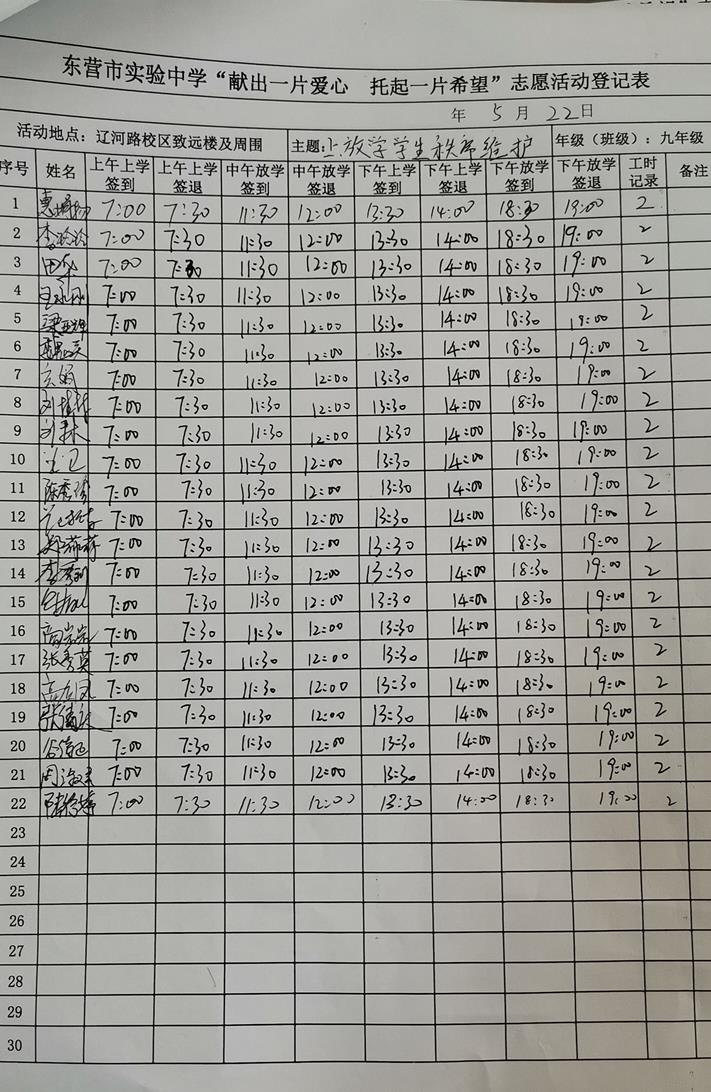 东营市实验中学“献出一片爱心 托起一片希望”志愿活动登记表
年 5 月 22 日
活动地点：辽河路校区致远楼及周围 主题：上放学学生秩序维护 年级（班级）：九年级
序号 姓名 上午上学签到 上午上学签退 中午放学签到 中午放学签退 下午上学签到 下午上学签退 下午放学签到 下午放学签退 工时记录 备注
1 7:00 7:30 11:30 12:00 13:30 14:00 18:30 19:00 2
2 李玲玲 7:00 7:30 11:30 12:00 13:30 14:00 18:30 19:00 2
3 7:00 7:30 11:30 12:00 13:30 14:00 18:30 19:00 2
4 7:00 7:30 11:30 12:00 13:30 14:00 18:30 19:00 2
5 7:00 7:30 11:30 12:00 13:30 14:00 18:30 19:00 2
6 7:00 7:30 11:30 12:00 13:30 14:00 18:30 19:00 2
7 7:00 7:30 11:30 12:00 13:30 14:00 18:30 19:00 2
8 7:00 7:30 11:30 12:00 13:30 14:00 18:30 19:00 2
9 7:00 7:30 11:30 12:00 13:30 14:00 18:30 19:00 2
10 7:00 7:30 11:30 12:00 13:30 14:00 18:30 19:00 2
11 7:00 7:30 11:30 12:00 13:30 14:00 18:30 19:00 2
12 7:00 7:30 11:30 12:00 13:30 14:00 18:30 19:00 2
13 7:00 7:30 11:30 12:00 13:30 14:00 18:30 19:00 2
14 7:00 7:30 11:30 12:00 13:30 14:00 18:30 19:00 2
15 7:00 7:30 11:30 12:00 13:30 14:00 18:30 19:00 2
16 7:00 7:30 11:30 12:00 13:30 14:00 18:30 19:00 2
17 张秀英 7:00 7:30 11:30 12:00 13:30 14:00 18:30 19:00 2
18 7:00 7:30 11:30 12:00 13:30 14:00 18:30 19:00 2
19 7:00 7:30 11:30 12:00 13:30 14:00 18:30 19:00 2
20 7:00 7:30 11:30 12:00 13:30 14:00 18:30 19:00 2
21 7:00 7:30 11:30 12:00 13:30 14:00 18:30 19:00 2
22 7:00 7:30 11:30 12:00 13:30 14:00 18:30 19:00 2
23
24
25
26
27
28
29
30